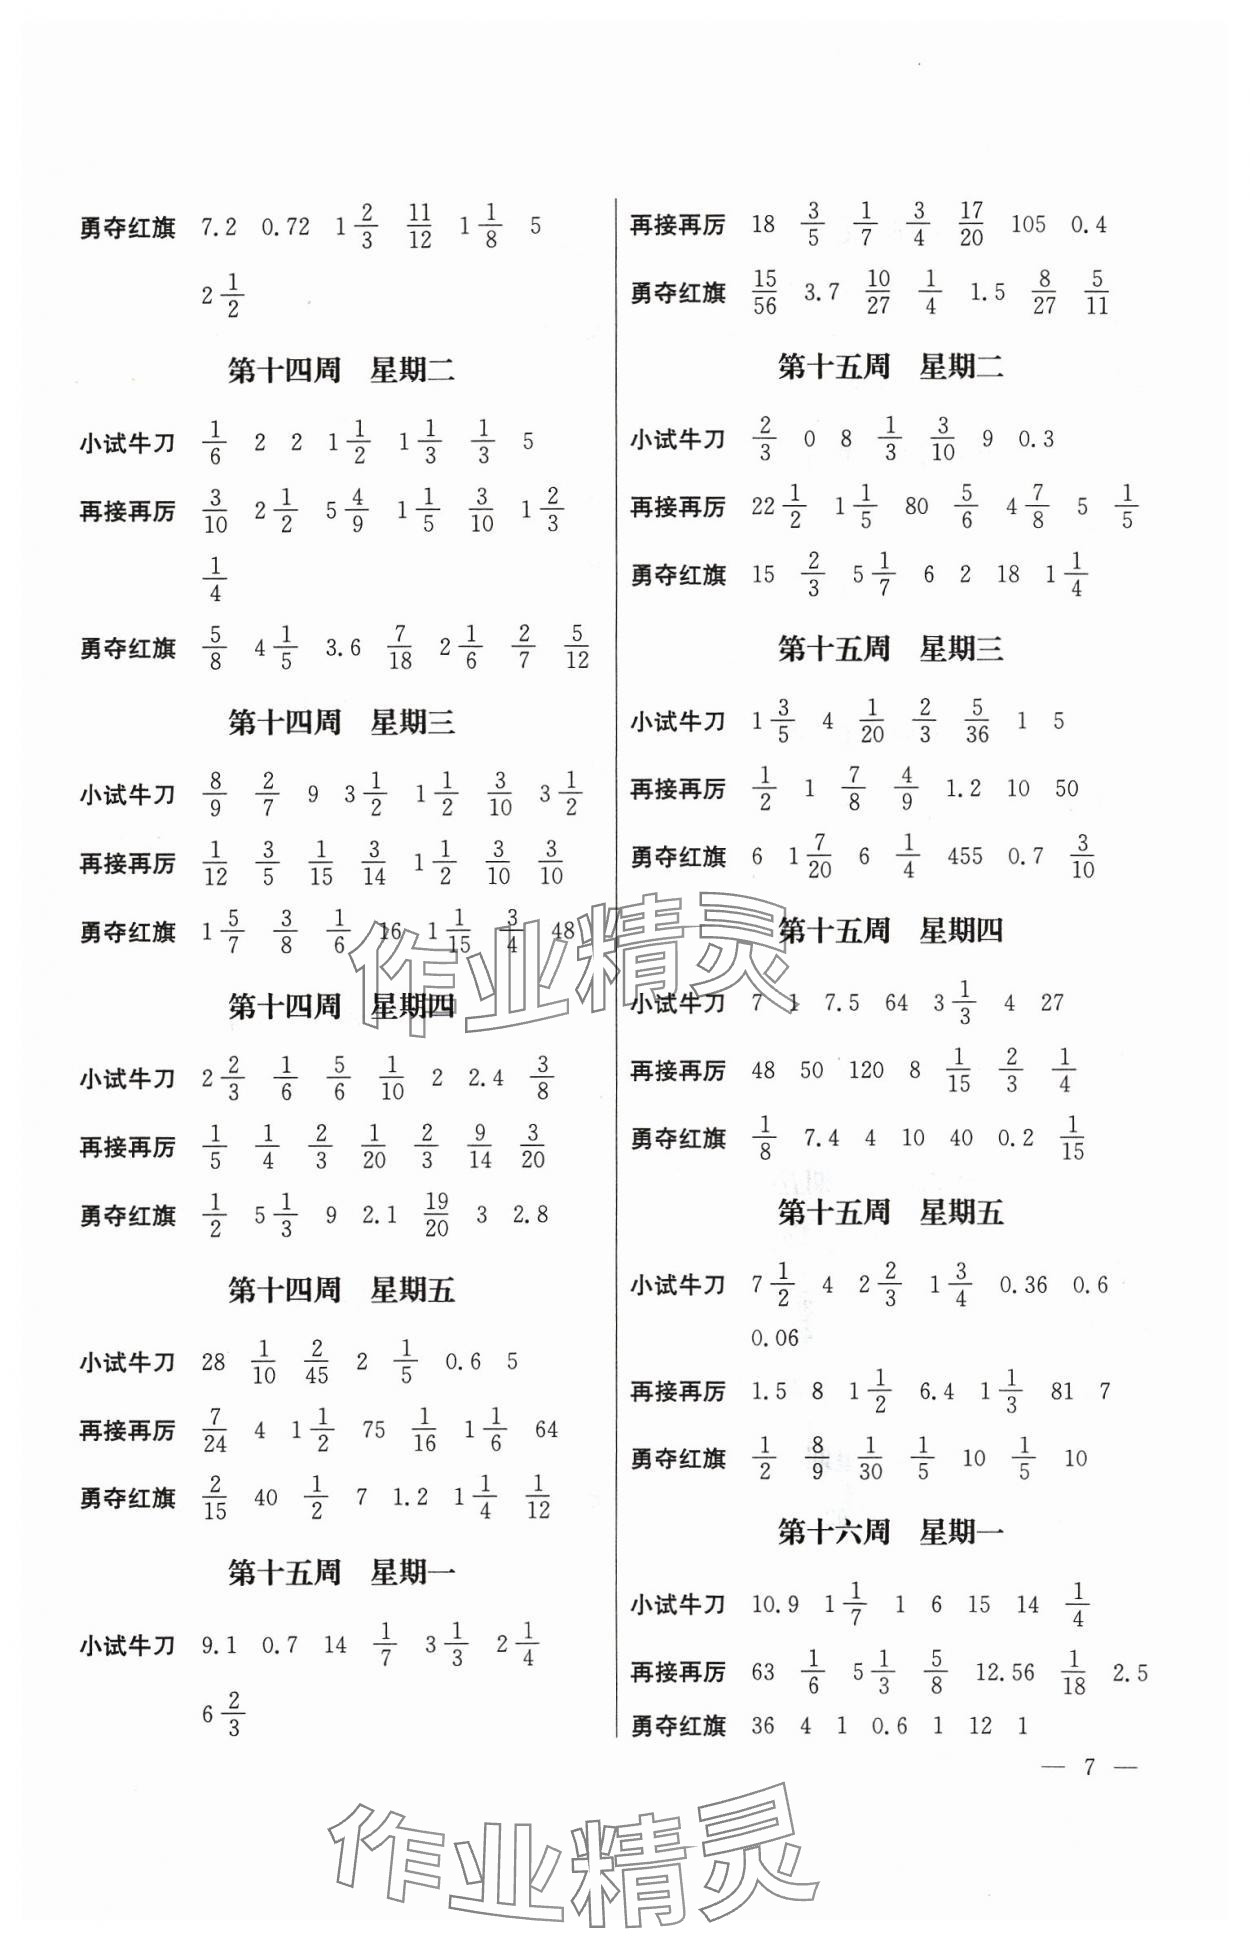 勇夺红旗 7.2 0.72 1 2/3 11/12 1 1/8 5
2 1/2
第十四周 星期二
小试牛刀 1/6 2 2 1 1/2 1 1/3 1/3 5
再接再厉 3/10 2 1/2 5 4/9 1 1/5 3/10 1 2/3
1/4
勇夺红旗 5/8 4 1/5 3.6 7/18 2 1/6 2/7 5/12
第十四周 星期三
小试牛刀 8/9 2/7 9 3 1/2 1 1/2 3/10 3 1/2
再接再厉 1/12 3/5 1/15 3/14 1 1/2 3/10 3/10
勇夺红旗 1 5/7 3/8 1/6 16 1 1/15 3/4 48
第十四周 星期四
小试牛刀 2 2/3 1/6 5/6 1/10 2 2.4 3/8
再接再厉 1/5 1/4 2/3 1/20 2/3 9/14 3/20
勇夺红旗 1/2 5 1/3 9 2.1 19/20 3 2.8
第十四周 星期五
小试牛刀 28 1/10 2/45 2 1/5 0.6 5
再接再厉 7/24 4 1 1/2 75 1/16 1 1/6 64
勇夺红旗 2/15 40 1/2 7 1.2 1 1/4 1/12
第十五周 星期一
小试牛刀 9.1 0.7 14 1/7 3 1/3 2 1/4
6 2/3
再接再厉 18 3/5 1/7 3/4 17/20 105 0.4
勇夺红旗 15/56 3.7 10/27 1/4 1.5 8/27 5/11
第十五周 星期二
小试牛刀 2/3 0 8 1/3 3/10 9 0.3
再接再厉 22 1/2 1 1/5 80 5/6 4 7/8 5 1/5
勇夺红旗 15 2/3 5 1/7 6 2 18 1 1/4
第十五周 星期三
小试牛刀 1 3/5 4 1/20 2/3 5/36 1 5
再接再厉 1/2 1 7/8 4/9 1.2 10 50
勇夺红旗 6 1 7/20 6 1/4 455 0.7 3/10
第十五周 星期四
小试牛刀 7 1 7.5 64 3 1/3 4 27
再接再厉 48 50 120 8 1/15 2/3 1/4
勇夺红旗 1/8 7.4 4 10 40 0.2 1/15
第十五周 星期五
小试牛刀 7 1/2 4 2 2/3 1 3/4 0.36 0.6
0.06
再接再厉 1.5 8 1 1/2 6.4 1 1/3 81 7
勇夺红旗 1/2 8/9 1/30 1/5 10 1/5 10
第十六周 星期一
小试牛刀 10.9 1 1/7 1 6 15 14 1/4
再接再厉 63 1/6 5 1/3 5/8 12.56 1/18 2.5
勇夺红旗 36 4 1 0.6 1 12 1
— 7 —
作业精灵
作业精灵